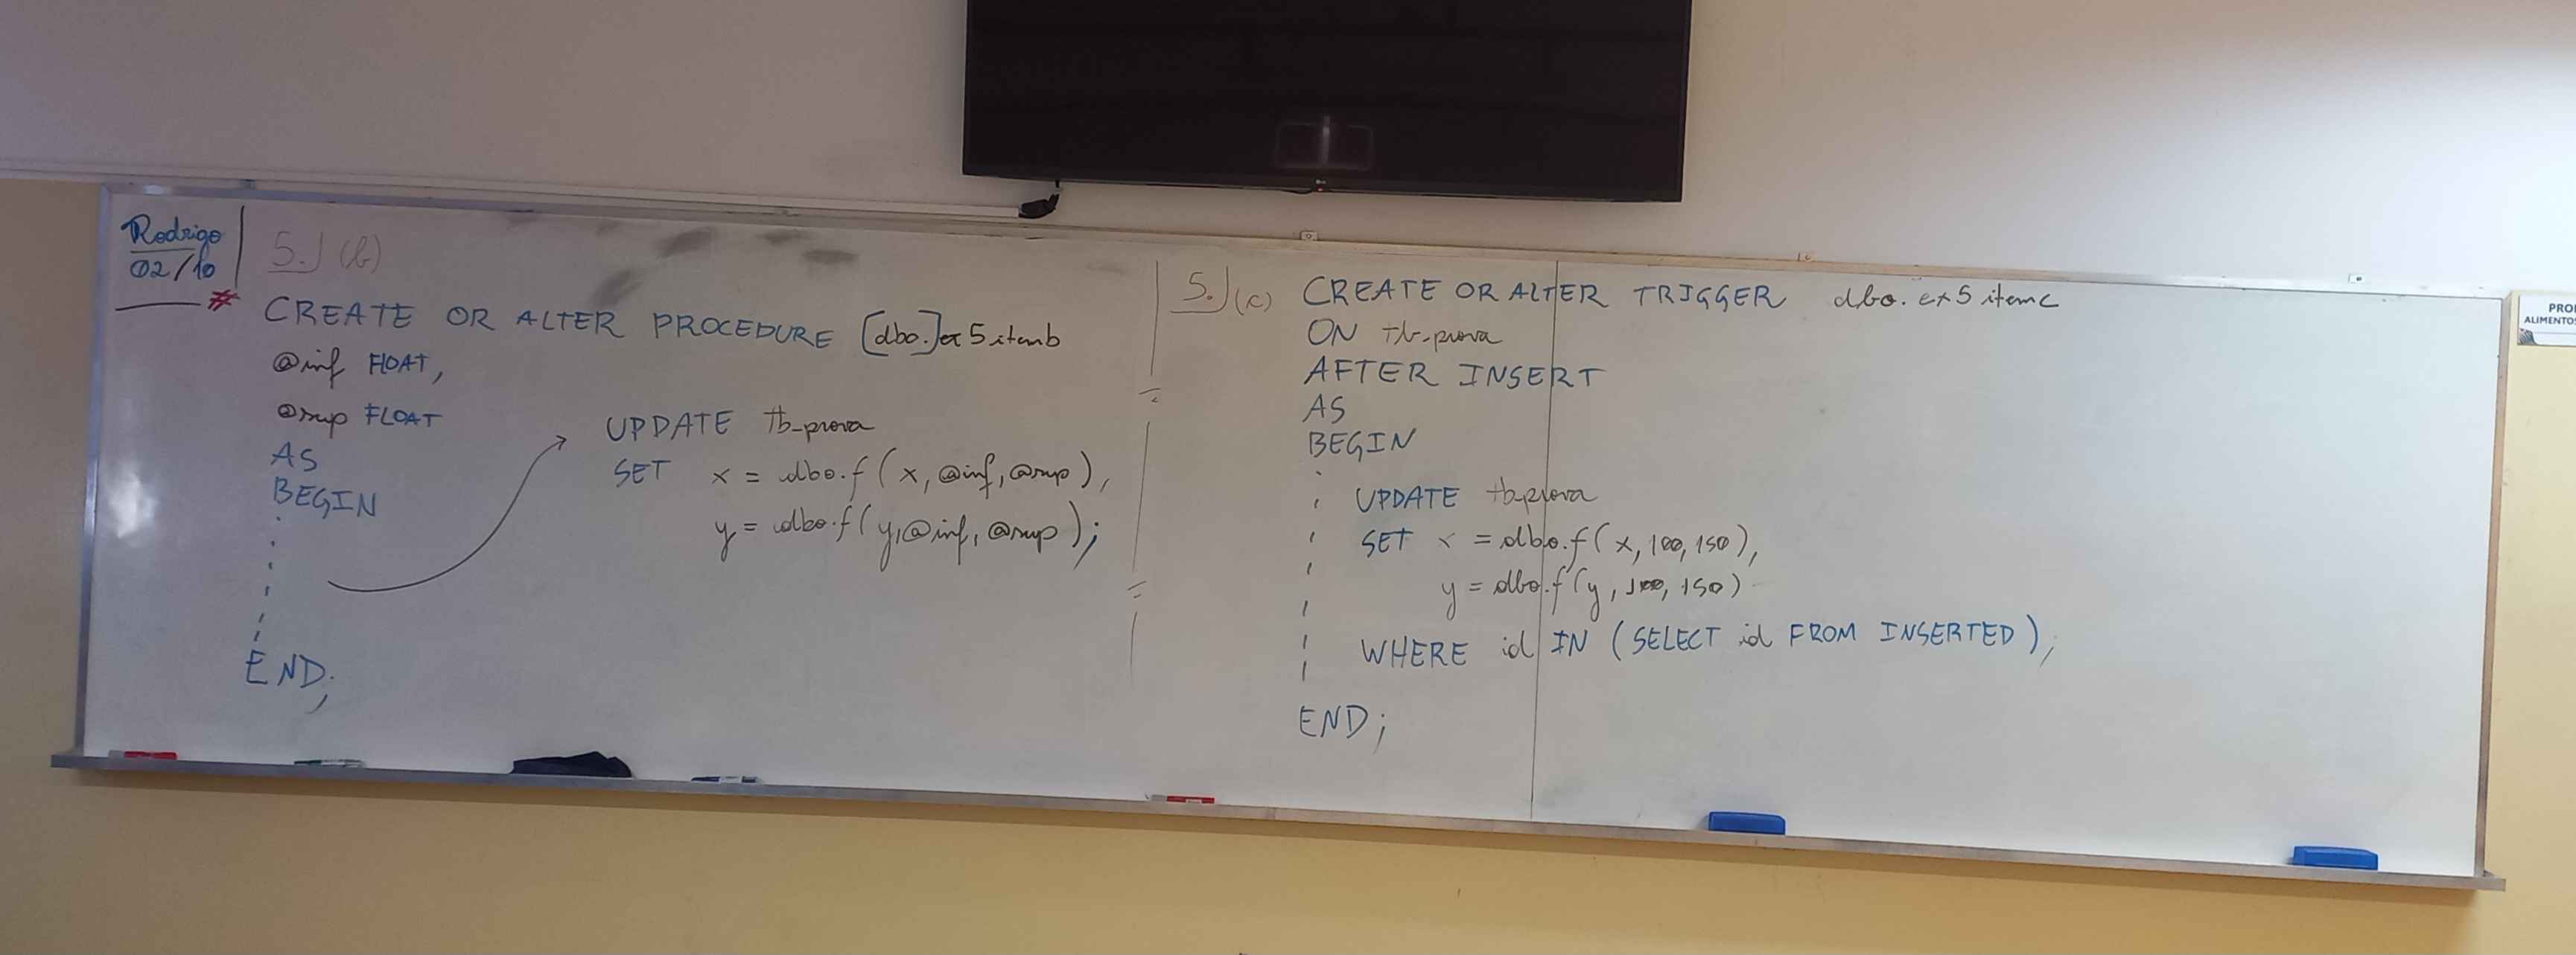 Rodrigo
02/10
5.) (b)
# CREATE OR ALTER PROCEDURE [dbo.]ex5itemb
@inf FLOAT,
@sup FLOAT
AS
BEGIN
UPDATE tb_prova
SET x = dbo.f(x, @inf, @sup),
y = dbo.f(y, @inf, @sup);
END;
5.) (c) CREATE OR ALTER TRIGGER dbo.ex5itemc
ON tb_prova
AFTER INSERT
AS
BEGIN
UPDATE tb_prova
SET x = dbo.f(x, 100, 150),
y = dbo.f(y, 100, 150)
WHERE id IN (SELECT id FROM INSERTED);
END;
LG
ALIMENTOS